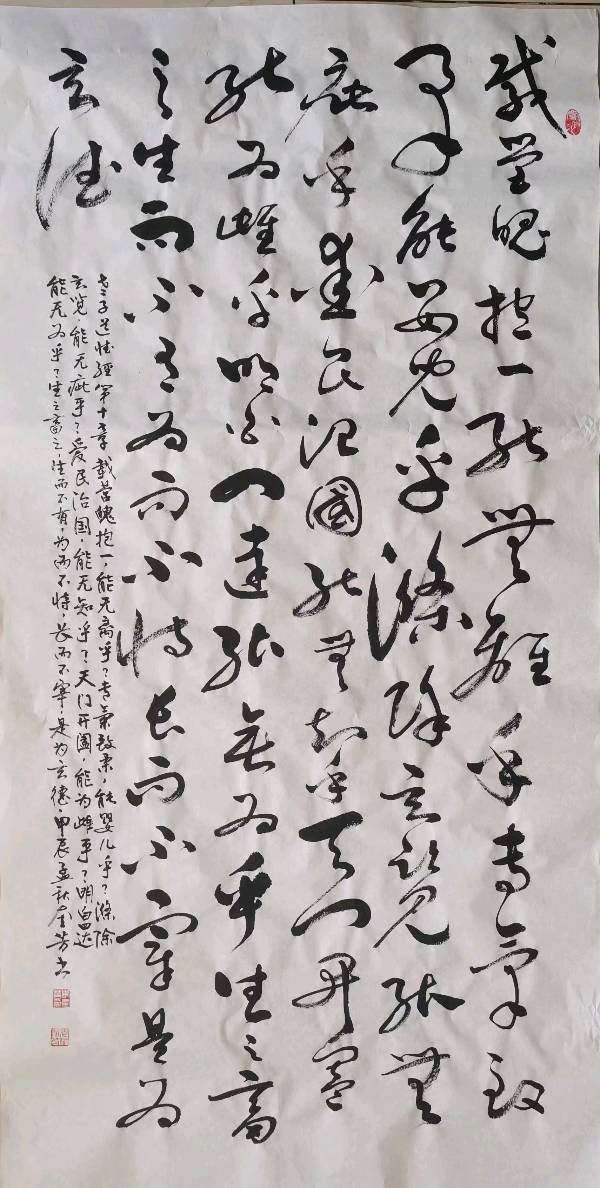 載營魄抱一能無離乎專氣致
柔能嬰兒乎滌除玄覽能無
疵乎愛民治國能無知乎天門開闔
能為雌乎明白四達能無為乎生之畜
之生而不有為而不恃長而不宰是為
玄德
老子道德经第十章 載营魄抱一，能无离乎？专氣致柔，能婴儿乎？涤除
玄览，能无疵乎？爱民治国，能无知乎？天门开阖，能为雌乎？明白四达
能无为乎？生之畜之，生而不有，为而不恃，长而不宰，是为玄德。甲辰孟秋金芳书